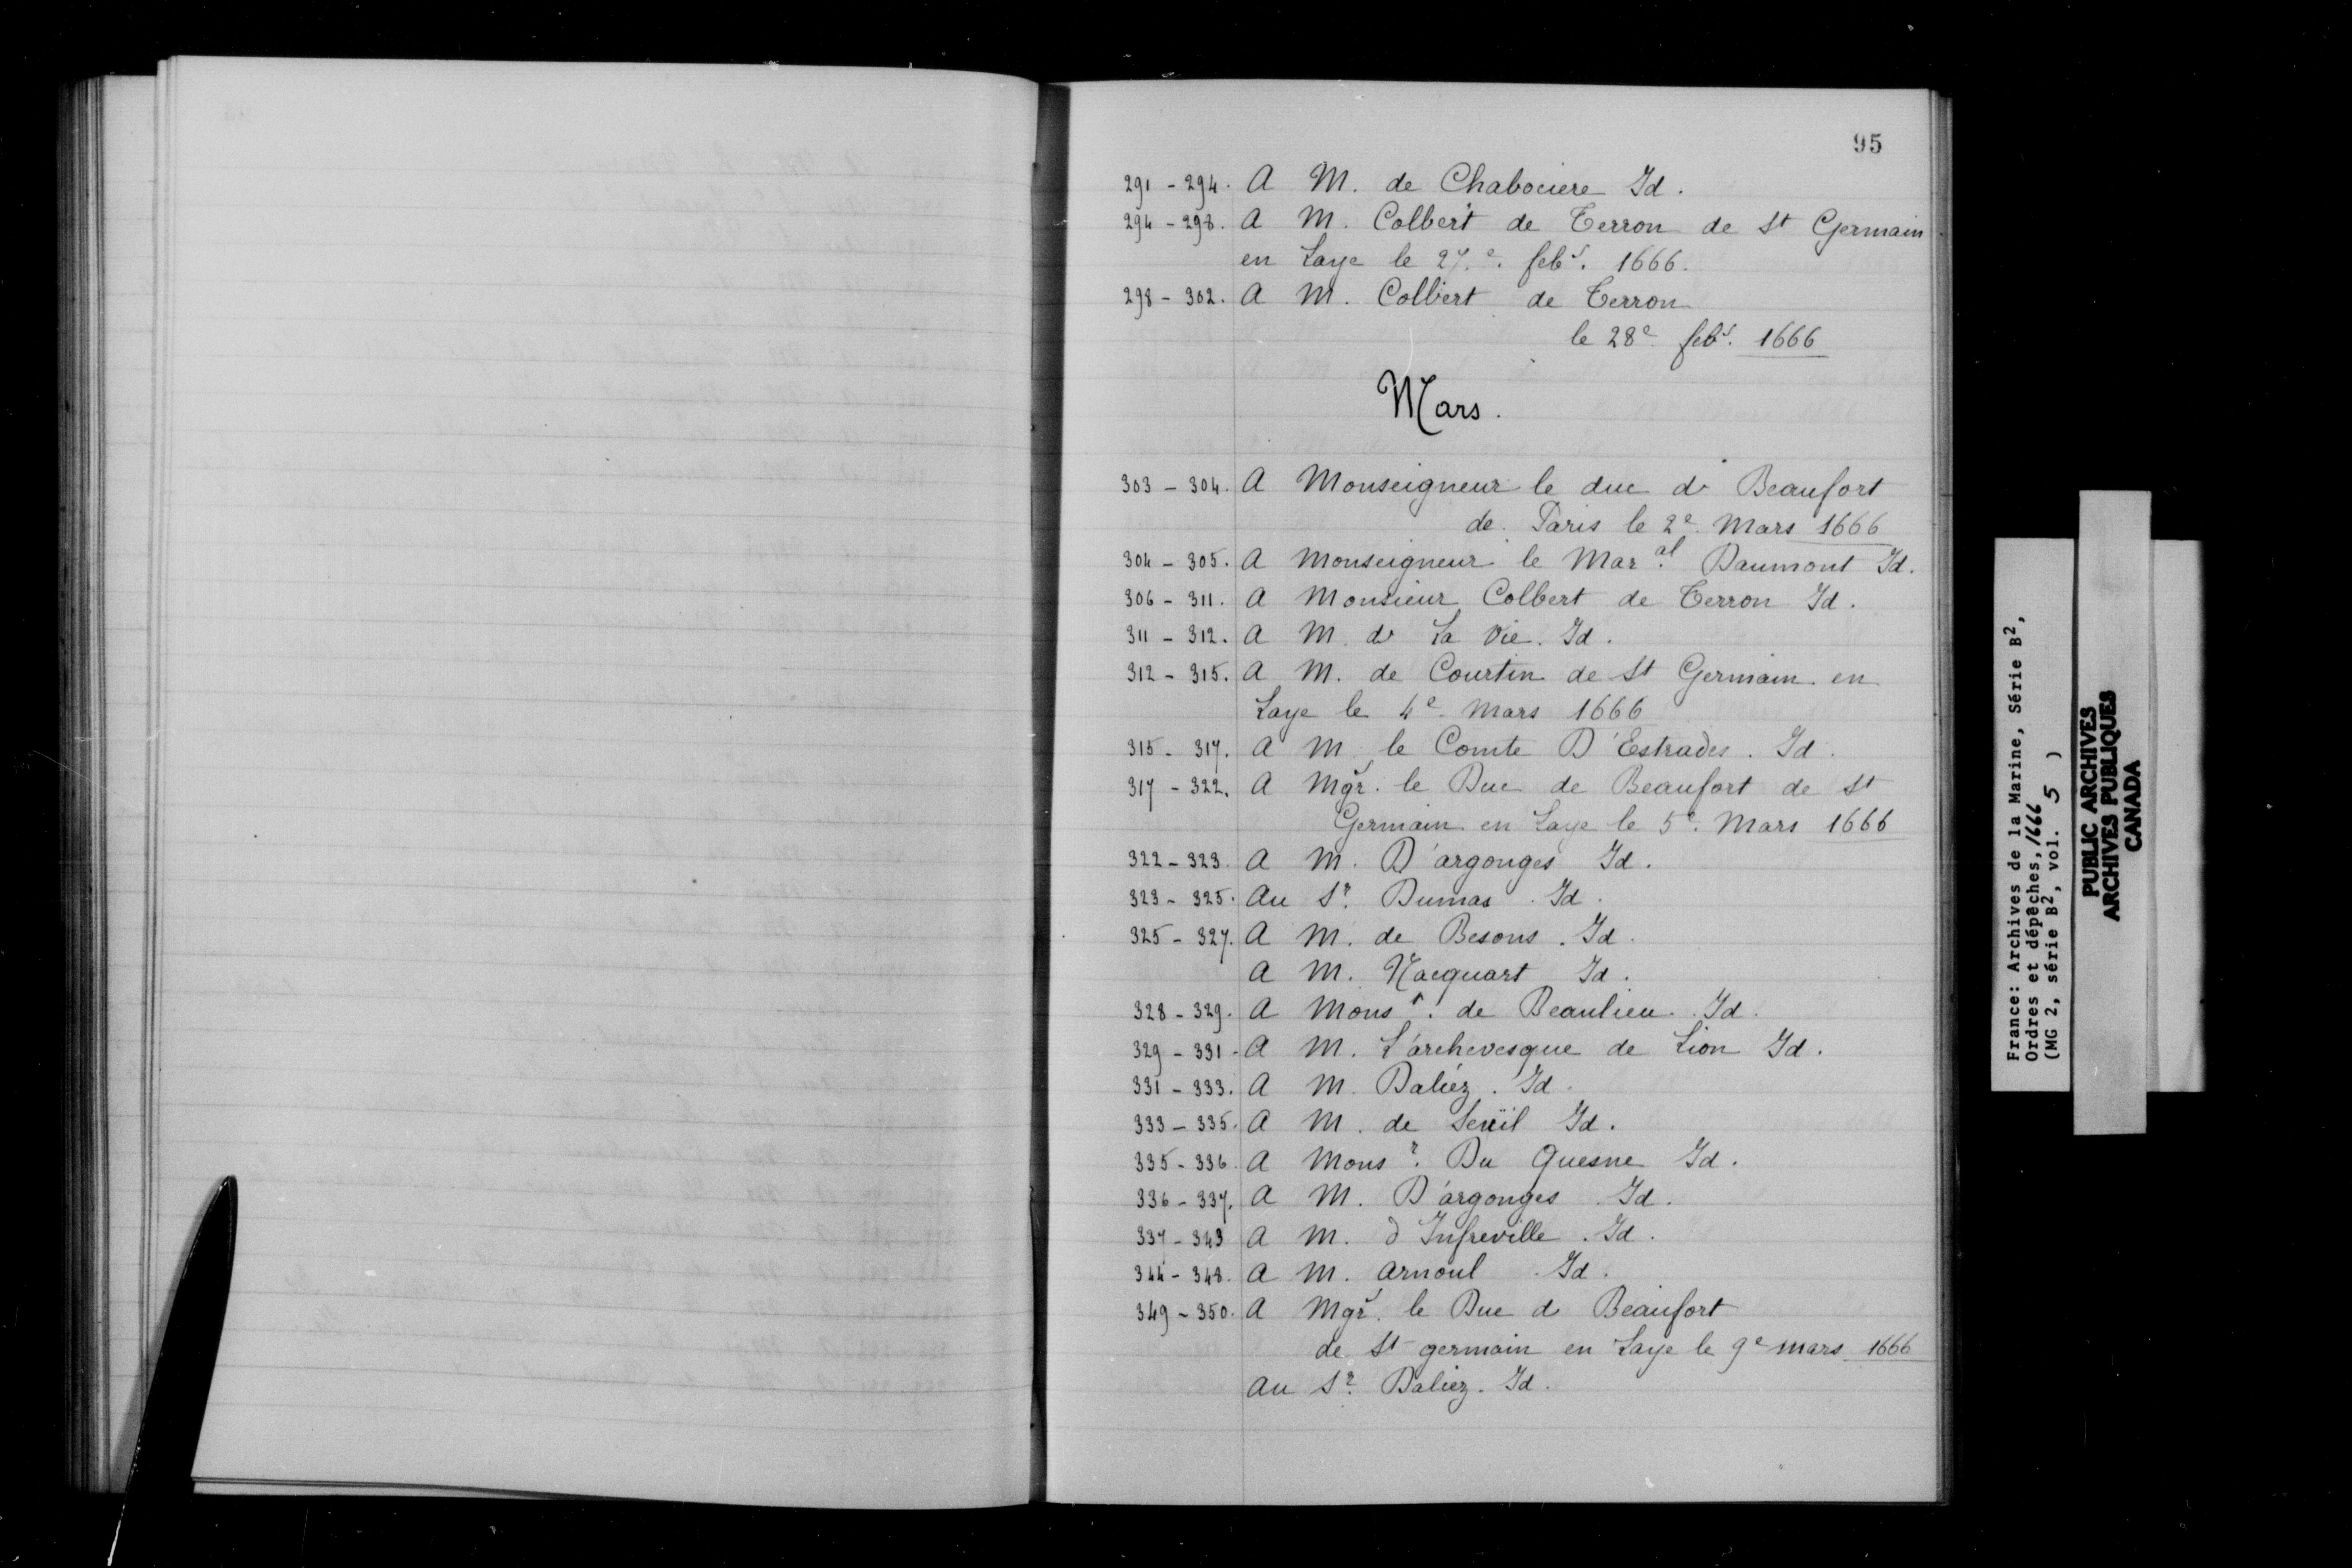 95
291 - 294. A M. de Chabociere Id.
294 - 298. A M. Colbert de Terron de St Germain
en Laye le 27.e febr. 1666.
298 - 302. A M. Colbert de Terron
le 28e febr. 1666
Mars.
303 - 304. A Monseigneur le duc de Beaufort
de Paris le 2e Mars 1666
304 - 305. A Monseigneur le Mar.al Daumont Id.
306 - 311. A Monsieur Colbert de Terron Id.
311 - 312. A M. de La Vie. Id.
312 - 315. A M. de Courtin de St Germain en
Laye le 4e Mars 1666
315 - 317. A M. le Comte D'Estrades. Id.
317 - 322. A Mgr. le Duc de Beaufort de St
Germain en Laye le 5e. Mars 1666
322 - 323. A M. D'argonges Id.
323 - 325. Au Sr. Dumas. Id.
325 - 327. A M. de Besons. Id.
A M. Nacquart Id.
328 - 329. A Monsr. de Beaulieu. Id.
329 - 331. A M. L'archevesque de Lion Id.
331 - 333. A M. Daliéz. Id.
333 - 335. A M. de Seüil Id.
335 - 336. A Monsr. Du Quesne Id.
336 - 337. A M. D'argonges. Id.
337 - 343 A M. d'Infreville. Id.
344 - 348. A M. Arnoul. Id.
349 - 350. A Mgr. le Duc de Beaufort
de St germain en Laye le 9e mars 1666
Au Sr. Daliez. Id.
France: Archives de la Marine, Série B2,
Ordres et dépêches, 1666
(MG 2, série B2, vol. 5 )
PUBLIC ARCHIVES
ARCHIVES PUBLIQUES
CANADA